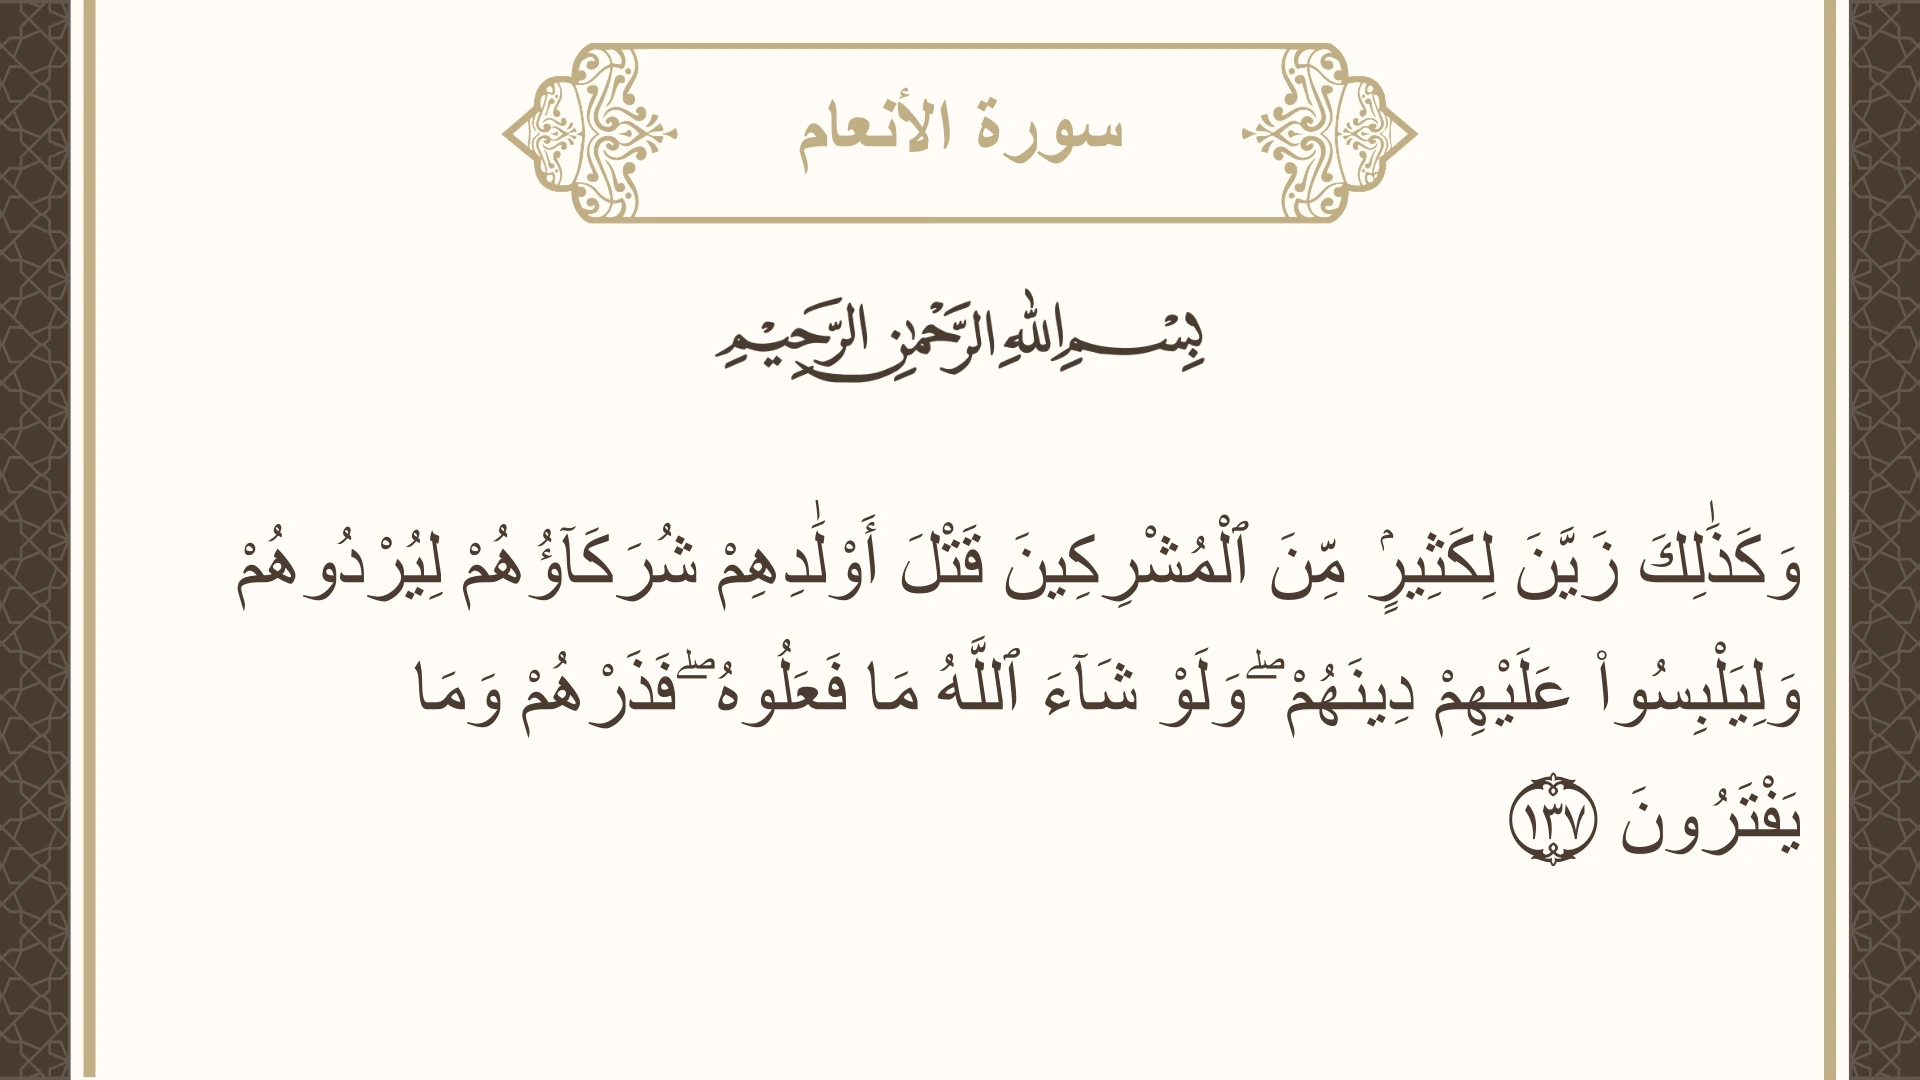 سورة الأنعام
بِسْمِ اللهِ الرَّحْمٰنِ الرَّحِيْمِ
وَكَذَٰلِكَ زَيَّنَ لِكَثِيرٍۢ مِّنَ ٱلْمُشْرِكِينَ قَتْلَ أَوْلَٰدِهِمْ شُرَكَآؤُهُمْ لِيُرْدُوهُمْ
وَلِيَلْبِسُوا۟ عَلَيْهِمْ دِينَهُمْ ۖ وَلَوْ شَآءَ ٱللَّهُ مَا فَعَلُوهُ ۖ فَذَرْهُمْ وَمَا
يَفْتَرُونَ ١٣٧